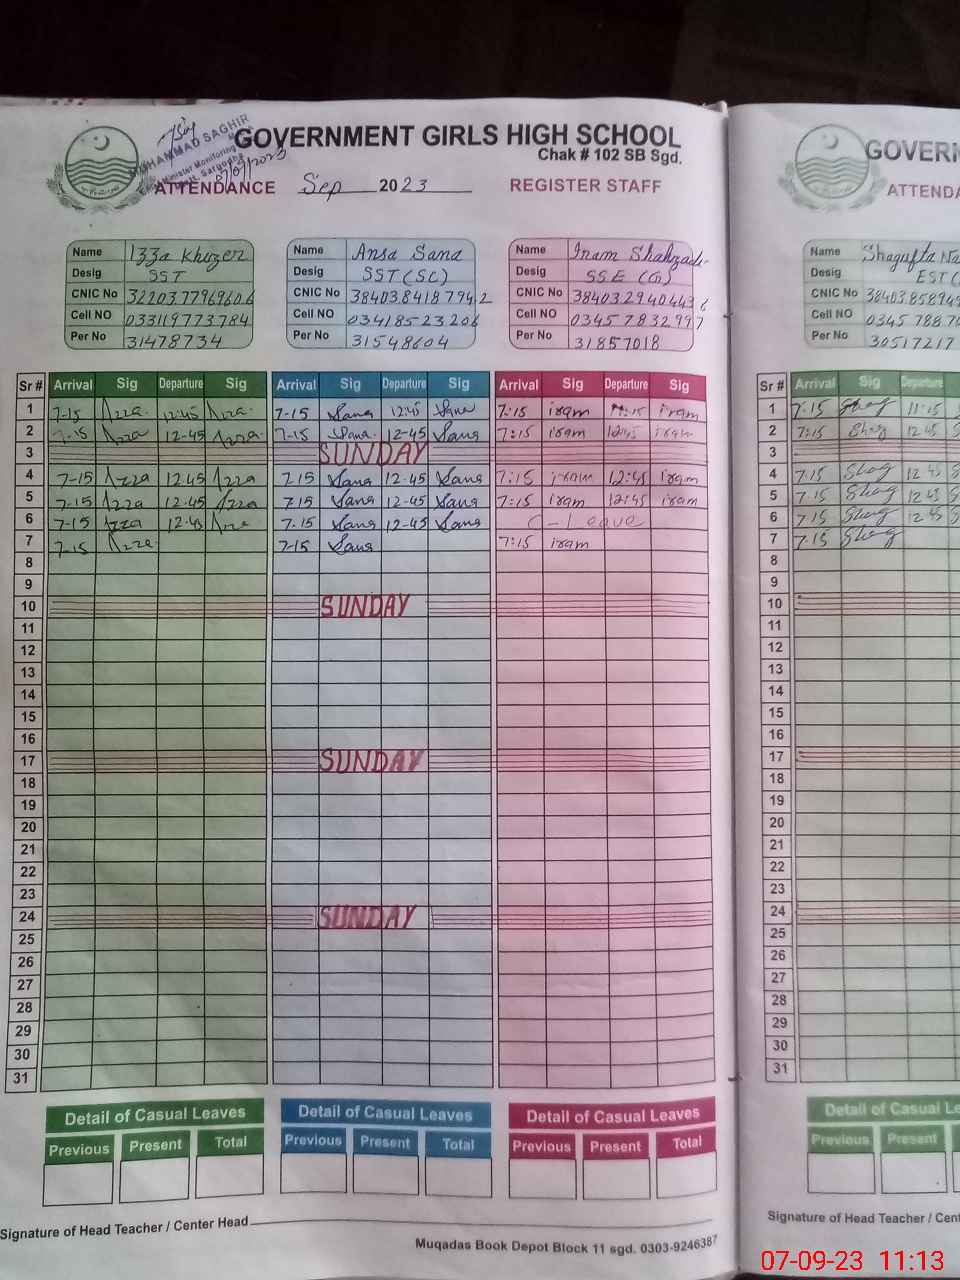 GOVERNMENT GIRLS HIGH SCHOOL
Chak # 102 SB Sgd.
MUHAMMAD SAGHIR
ATTENDANCE Sep 2023 REGISTER STAFF
Name Izza Khizer
Desig SST
CNIC No
Cell NO 03311977 3784
Per No 31478734
Name Ansa Sana
Desig SST (SC)
CNIC No 3840384187942
Cell NO 03418523206
Per No 31548604
Name Iram Shahzadi
Desig SSE (G)
CNIC No 3840329404436
Cell NO 0345 7832997
Per No 31857018
Sr # Arrival Sig Departure Sig Arrival Sig Departure Sig Arrival Sig Departure Sig
1 7-15 Azza 12:45 Azza 7-15 Sana 12:45 Sana 7:15 iram 11:15 iram
2 7-15 Azza 12-45 Azza 7-15 Sana 12-45 Sana 7:15 iram 12:45 iram
3 SUNDAY
4 7-15 Azza 12-45 Azza 7.15 Sana 12-45 Sana 7:15 iram 12:45 iram
5 7-15 Azza 12-45 Azza 7.15 Sana 12-45 Sana 7:15 iram 12:45 iram
6 7-15 Azza 12-45 Azza 7.15 Sana 12-45 Sana C-Leave
7 7-15 Azza 7-15 Sana 7:15 iram
8
9
10 SUNDAY
11
12
13
14
15
16
17 SUNDAY
18
19
20
21
22
23
24 SUNDAY
25
26
27
28
29
30
31
Detail of Casual Leaves Detail of Casual Leaves Detail of Casual Leaves
Previous Present Total Previous Present Total Previous Present Total
Signature of Head Teacher / Center Head
Muqadas Book Depot Block 11 sgd. 0303-9246387
GOVERN
ATTENDA
Name Shagufta Na
Desig EST (
CNIC No 384038589
Cell NO 0345 788
Per No 30517217
Sr # Arrival Sig Departure
1 7:15 Shag 11:15
2 7:15 Shag 12 45
3
4 7.15 Shag 12 45
5 7.15 Shag 12 45
6 7.15 Shag 12 45
7 7.15 Shag
8
9
10
11
12
13
14
15
16
17
18
19
20
21
22
23
24
25
26
27
28
29
30
31
Detail of Casual Le
Previous Present
Signature of Head Teacher / Cent
07-09-23 11:13